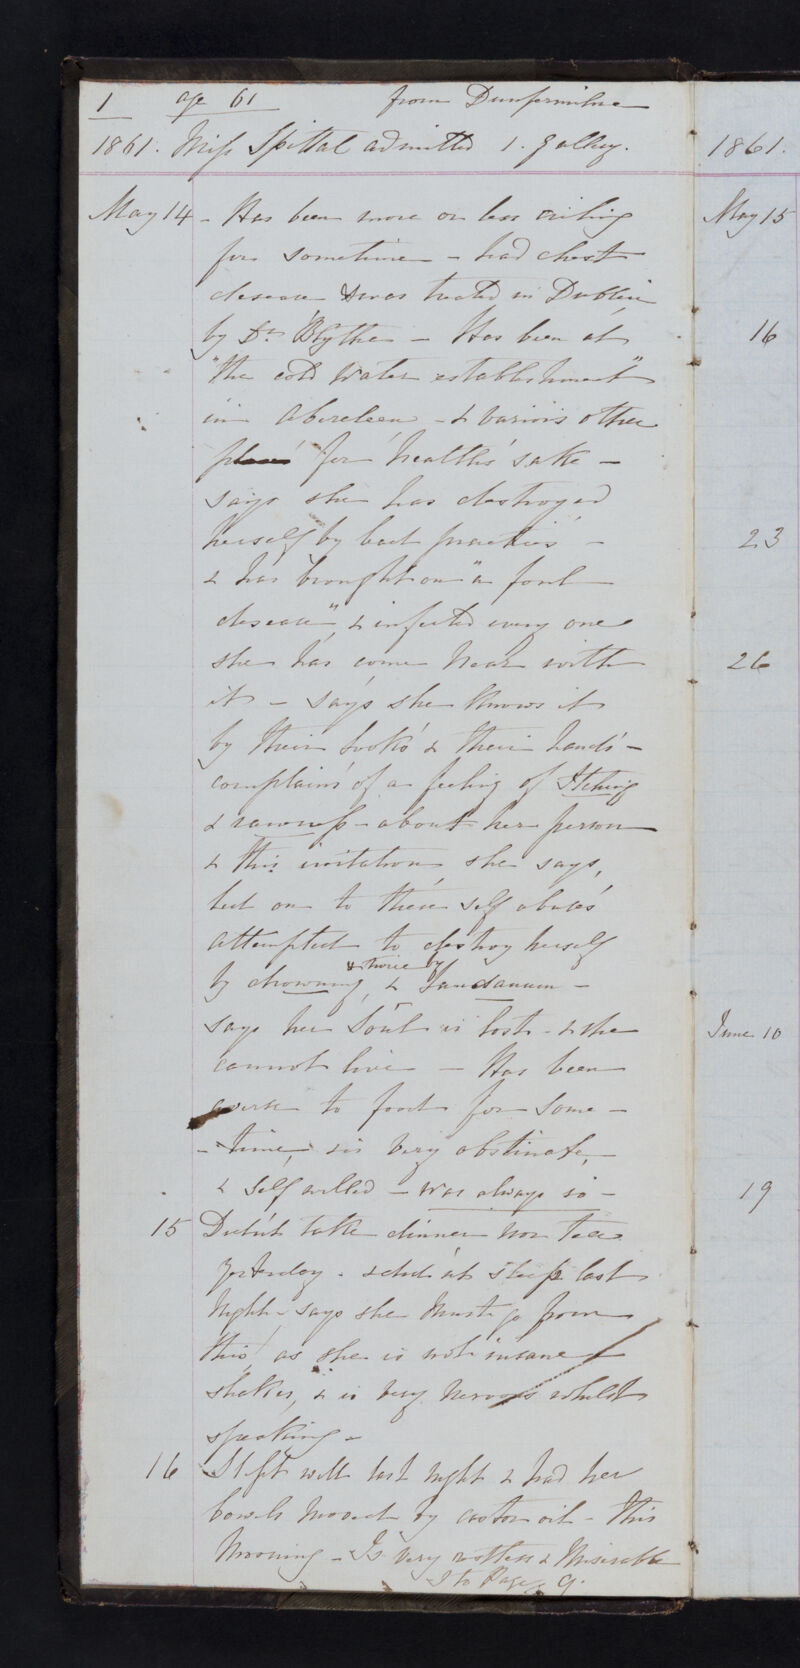 1 age 61 from Dunfermline
1861. Miss Spittal admitted 1. gallery.
May 14 - Has been more or less ailing
for sometime - had chest
disease & was treated in Dublin
by Dr. Blythe - Has been at
"the cold water establishment"
in Aberdeen - & various other
places for health's sake -
says she has destroyed
herself by bad practices -
& has brought on "a foul
disease", & infected every one
she has come near with
it - says she knows it
by their looks & their hands -
complains of a feeling of Itching
& rawness - about her person
& this irritation, she says,
led on to these self abuses
attempted to destroy herself
by drowning, & twice by Laudanum -
says her Soul is lost - & she
cannot live - Has been
averse to food for some -
- time, & is very obstinate, -
& self willed - was always so -
15 Didn't take dinner nor tea
yesterday - & didn't sleep last
night - says she must go from
this, as she is not insane -
shakes, & is very nervous whilst
speaking -
16 Slept well last night & had her
bowels moved by castor oil - this
morning - Is very restless & miserable
to Page 9.
1861.
May 15
16
23
26
June 10
19